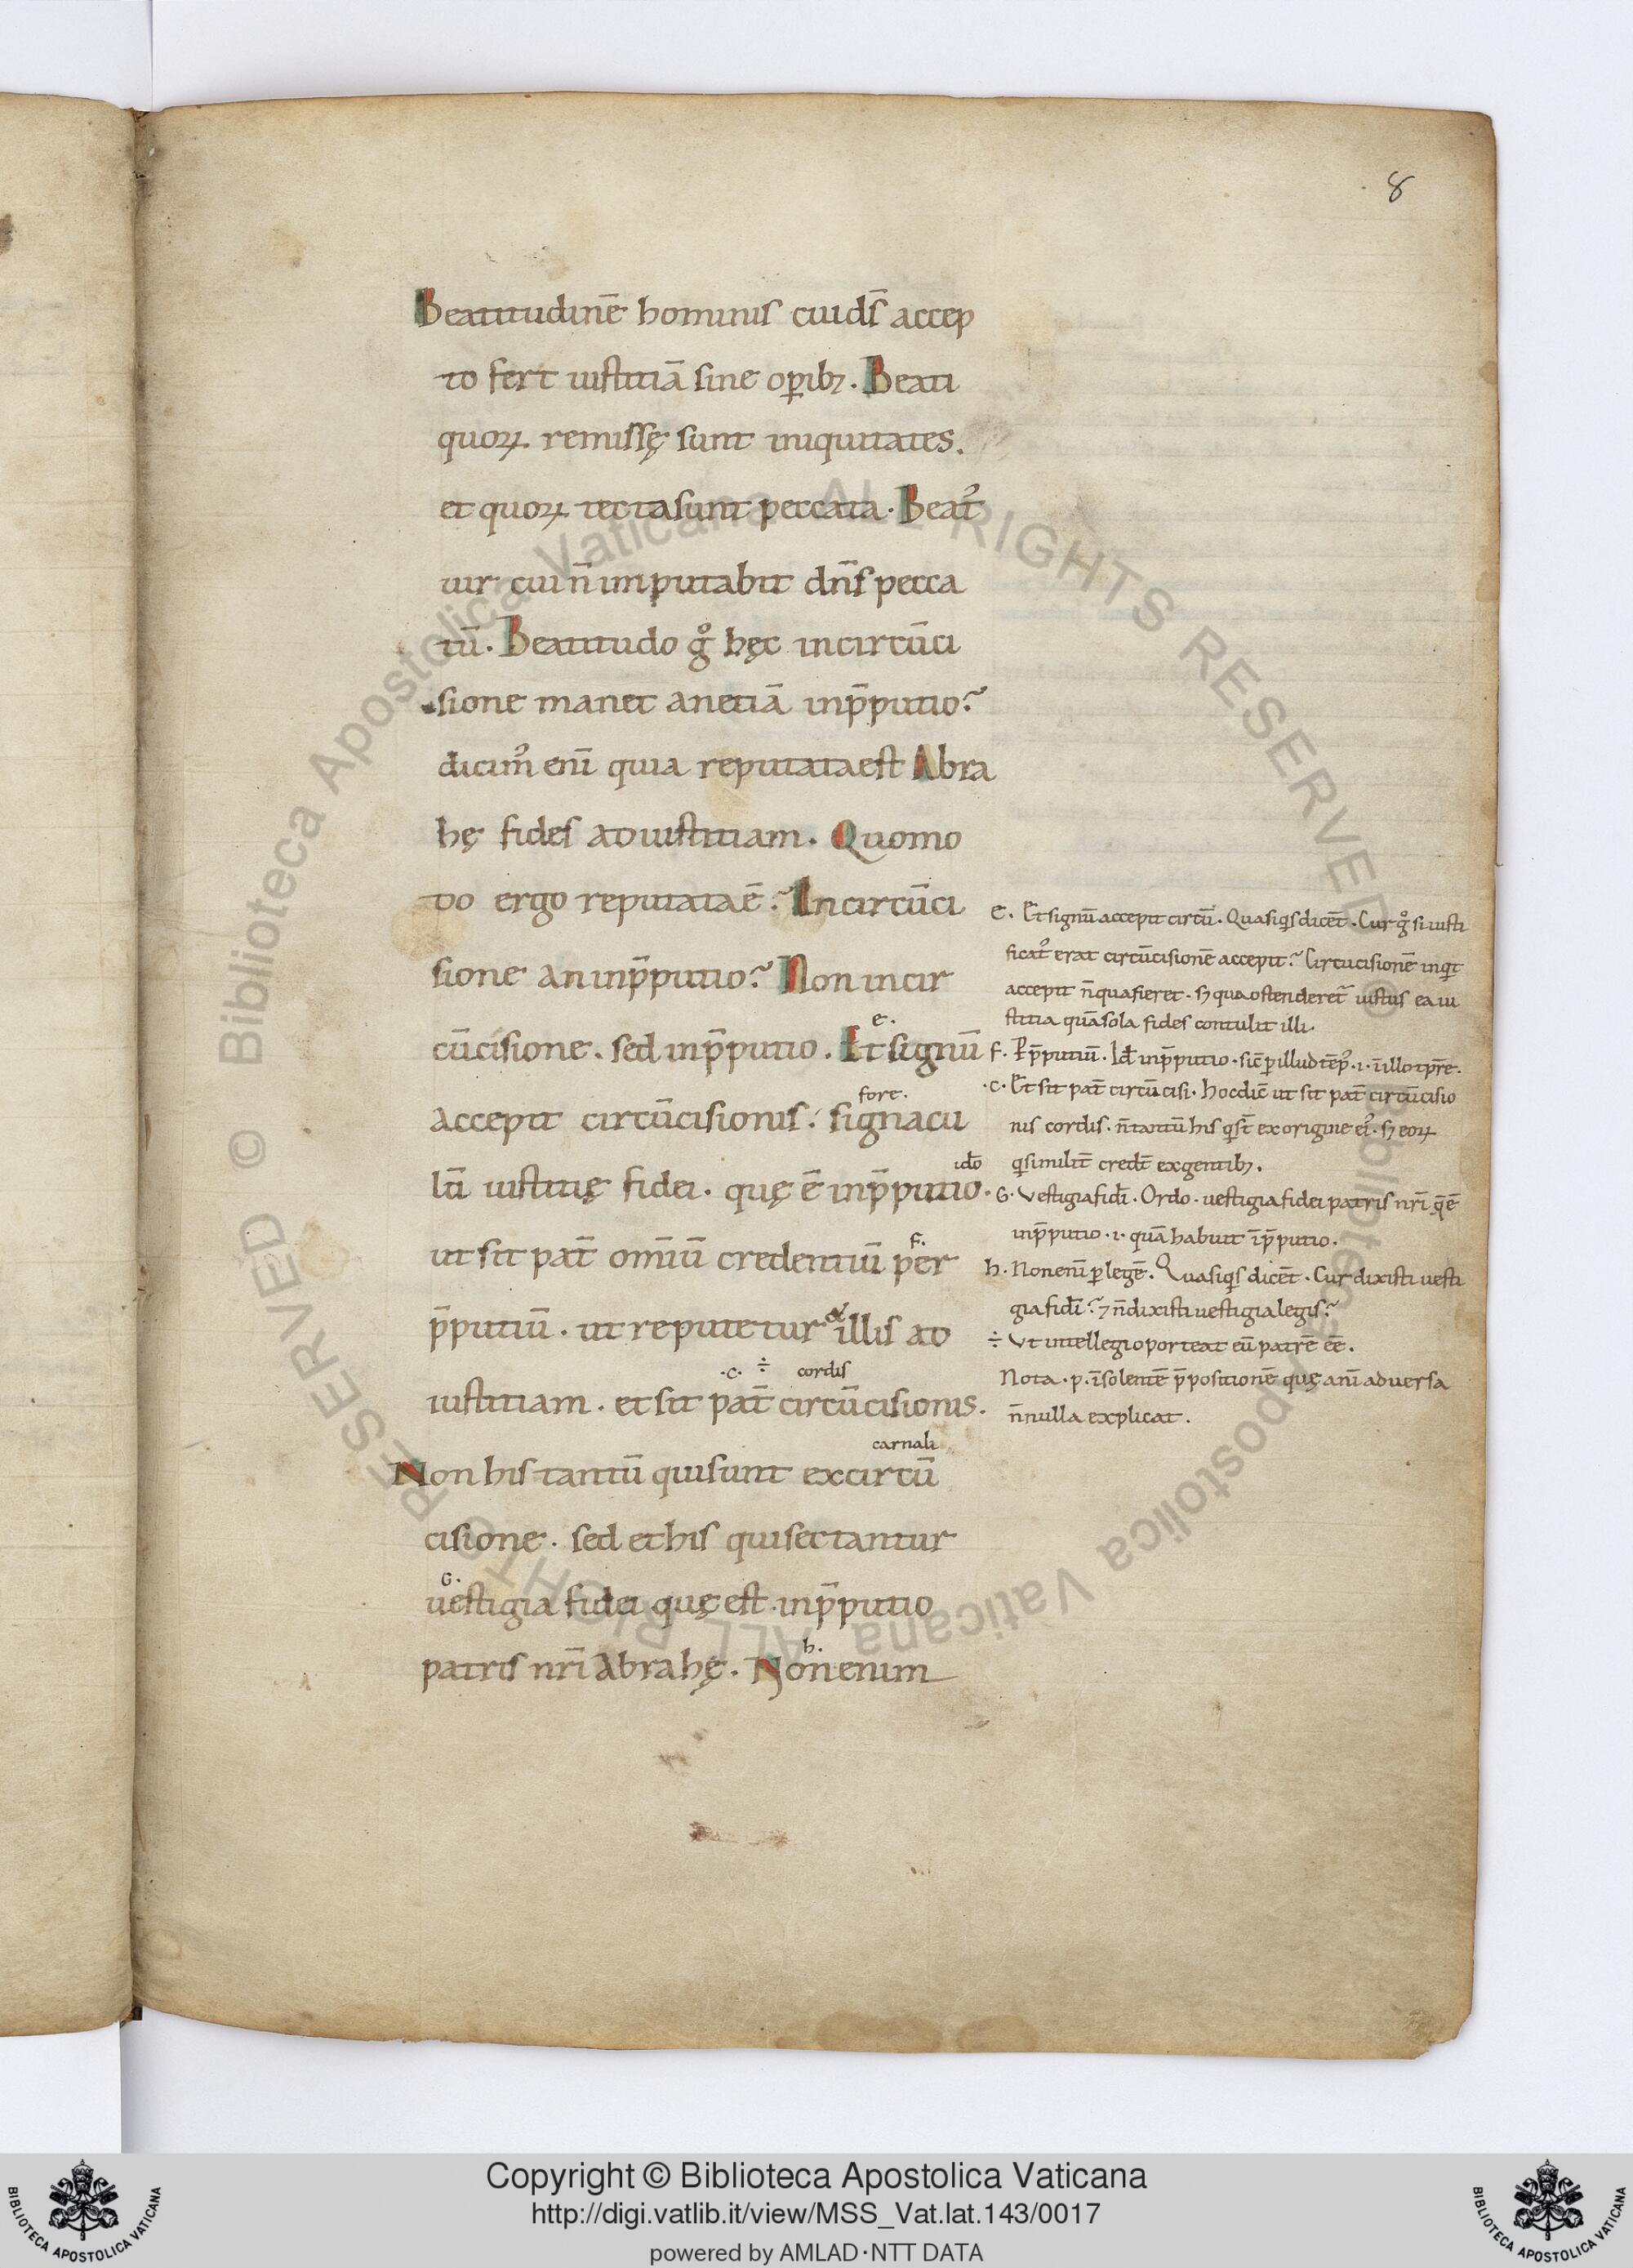 8
Beatitudinē hominis cui ds̄ accep
to fert iustitiā sine oꝑibꝫ. Beati
quoꝝ remissę sunt iniquitates.
et quoꝝ tecta sunt peccata. Beatꝰ
uir cui n̄ imputabit dn̄s pecca
tū. Beatitudo gͦ hęc in circūci
sione manet an etiā in p̄putio?
dicimꝰ enī quia reputata est Abra
hę fides ad iustitiam. Quomo
do ergo reputata ē? In circūci
sione an in p̄putio? Non in cir
e.
cūcisione. sed in p̄putio. Et signū
fore.
accepit circūcisionis: signacu
lū iustitię fidei. quę ē in p̄putio.
ut sit pat̄ omīū credentiū per
f.
p̄putiū. ut reputetur & illis ad
.c. ÷ cordis
iustitiam. et sit pat̄ circūcisionis.
carnali
Non his tantū qui sunt ex circū
cisione. sed et his qui sectantur
G.
uestigia fidei quę est in p̄putio
h.
patris nr̄i Abrahę. Non enim
e. Et signū accepit circū. Quasi q̇s dicēt. Cur gͦ si iusti
ficatꝰ erat circūcisionē accepit? Circucisionē inquit
accepit n̄ qua fieret. sꝫ qua ostenderet᷑ iustus ea iu
stitia quā sola fides contulit illi.
f. P̄putiū. Id̄ in p̄putio. sic̄ ꝑ illud tēpꝰ .i. ī illo tp̄re.
.c. Et sit pat̄ circūcisi. hoc dic̄ ut sit pat̄ circūcisio
nis cordis. n̄ tantū his q̇ st̄ ex origine eiꝰ. sꝫ eoꝝ
q̇ similit̄ credt̄ ex gentibꝫ.
G. Vestigia fidi. Ordo. uestigia fidei patris nr̄i q̄ ē
in p̄putio .i. quā habuit ī p̄putio.
h. Non enī ꝑ legē. Quasi q̇s dicēt. Cur dixisti uesti
gia fidī? ⁊ n̄ dixisti uestigia legis?
÷ Vt intellegi oporteat eū patrē ēē.
Nota .p. īsolentē p̄positionē quę anī aduersa
n̄nulla explicat.
Copyright © Biblioteca Apostolica Vaticana
http://digi.vatlib.it/view/MSS_Vat.lat.143/0017
powered by AMLAD·NTT DATA
BIBLIOTECA APOSTOLICA VATICANA
BIBLIOTECA APOSTOLICA VATICANA